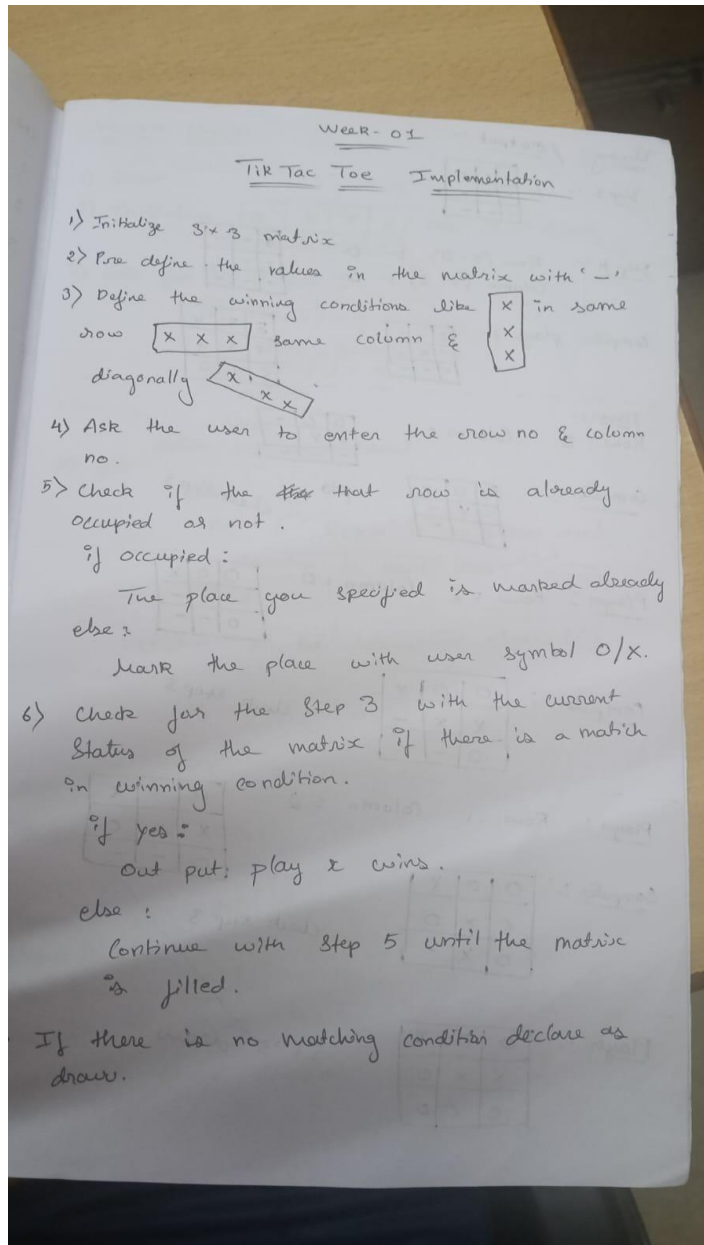 Week - 01
Tik Tac Toe Implementation
1) Initialize 3x3 matrix
2) Pre define the values in the matrix with '_'
3) Define the winning conditions like X in same
X
X
row X X X same column &
diagonally X X X
4) Ask the user to enter the row no & column
no.
5) check if the that row is already
occupied or not.
if occupied :
The place you specified is marked already
else :
Mark the place with user symbol O/X.
6) Check for the Step 3 with the current
Status of the matrix if there is a match
in winning condition.
if yes :
Out put: play x wins.
else :
Continue with Step 5 until the matrix
is filled.
If there is no matching condition declare as
draw.